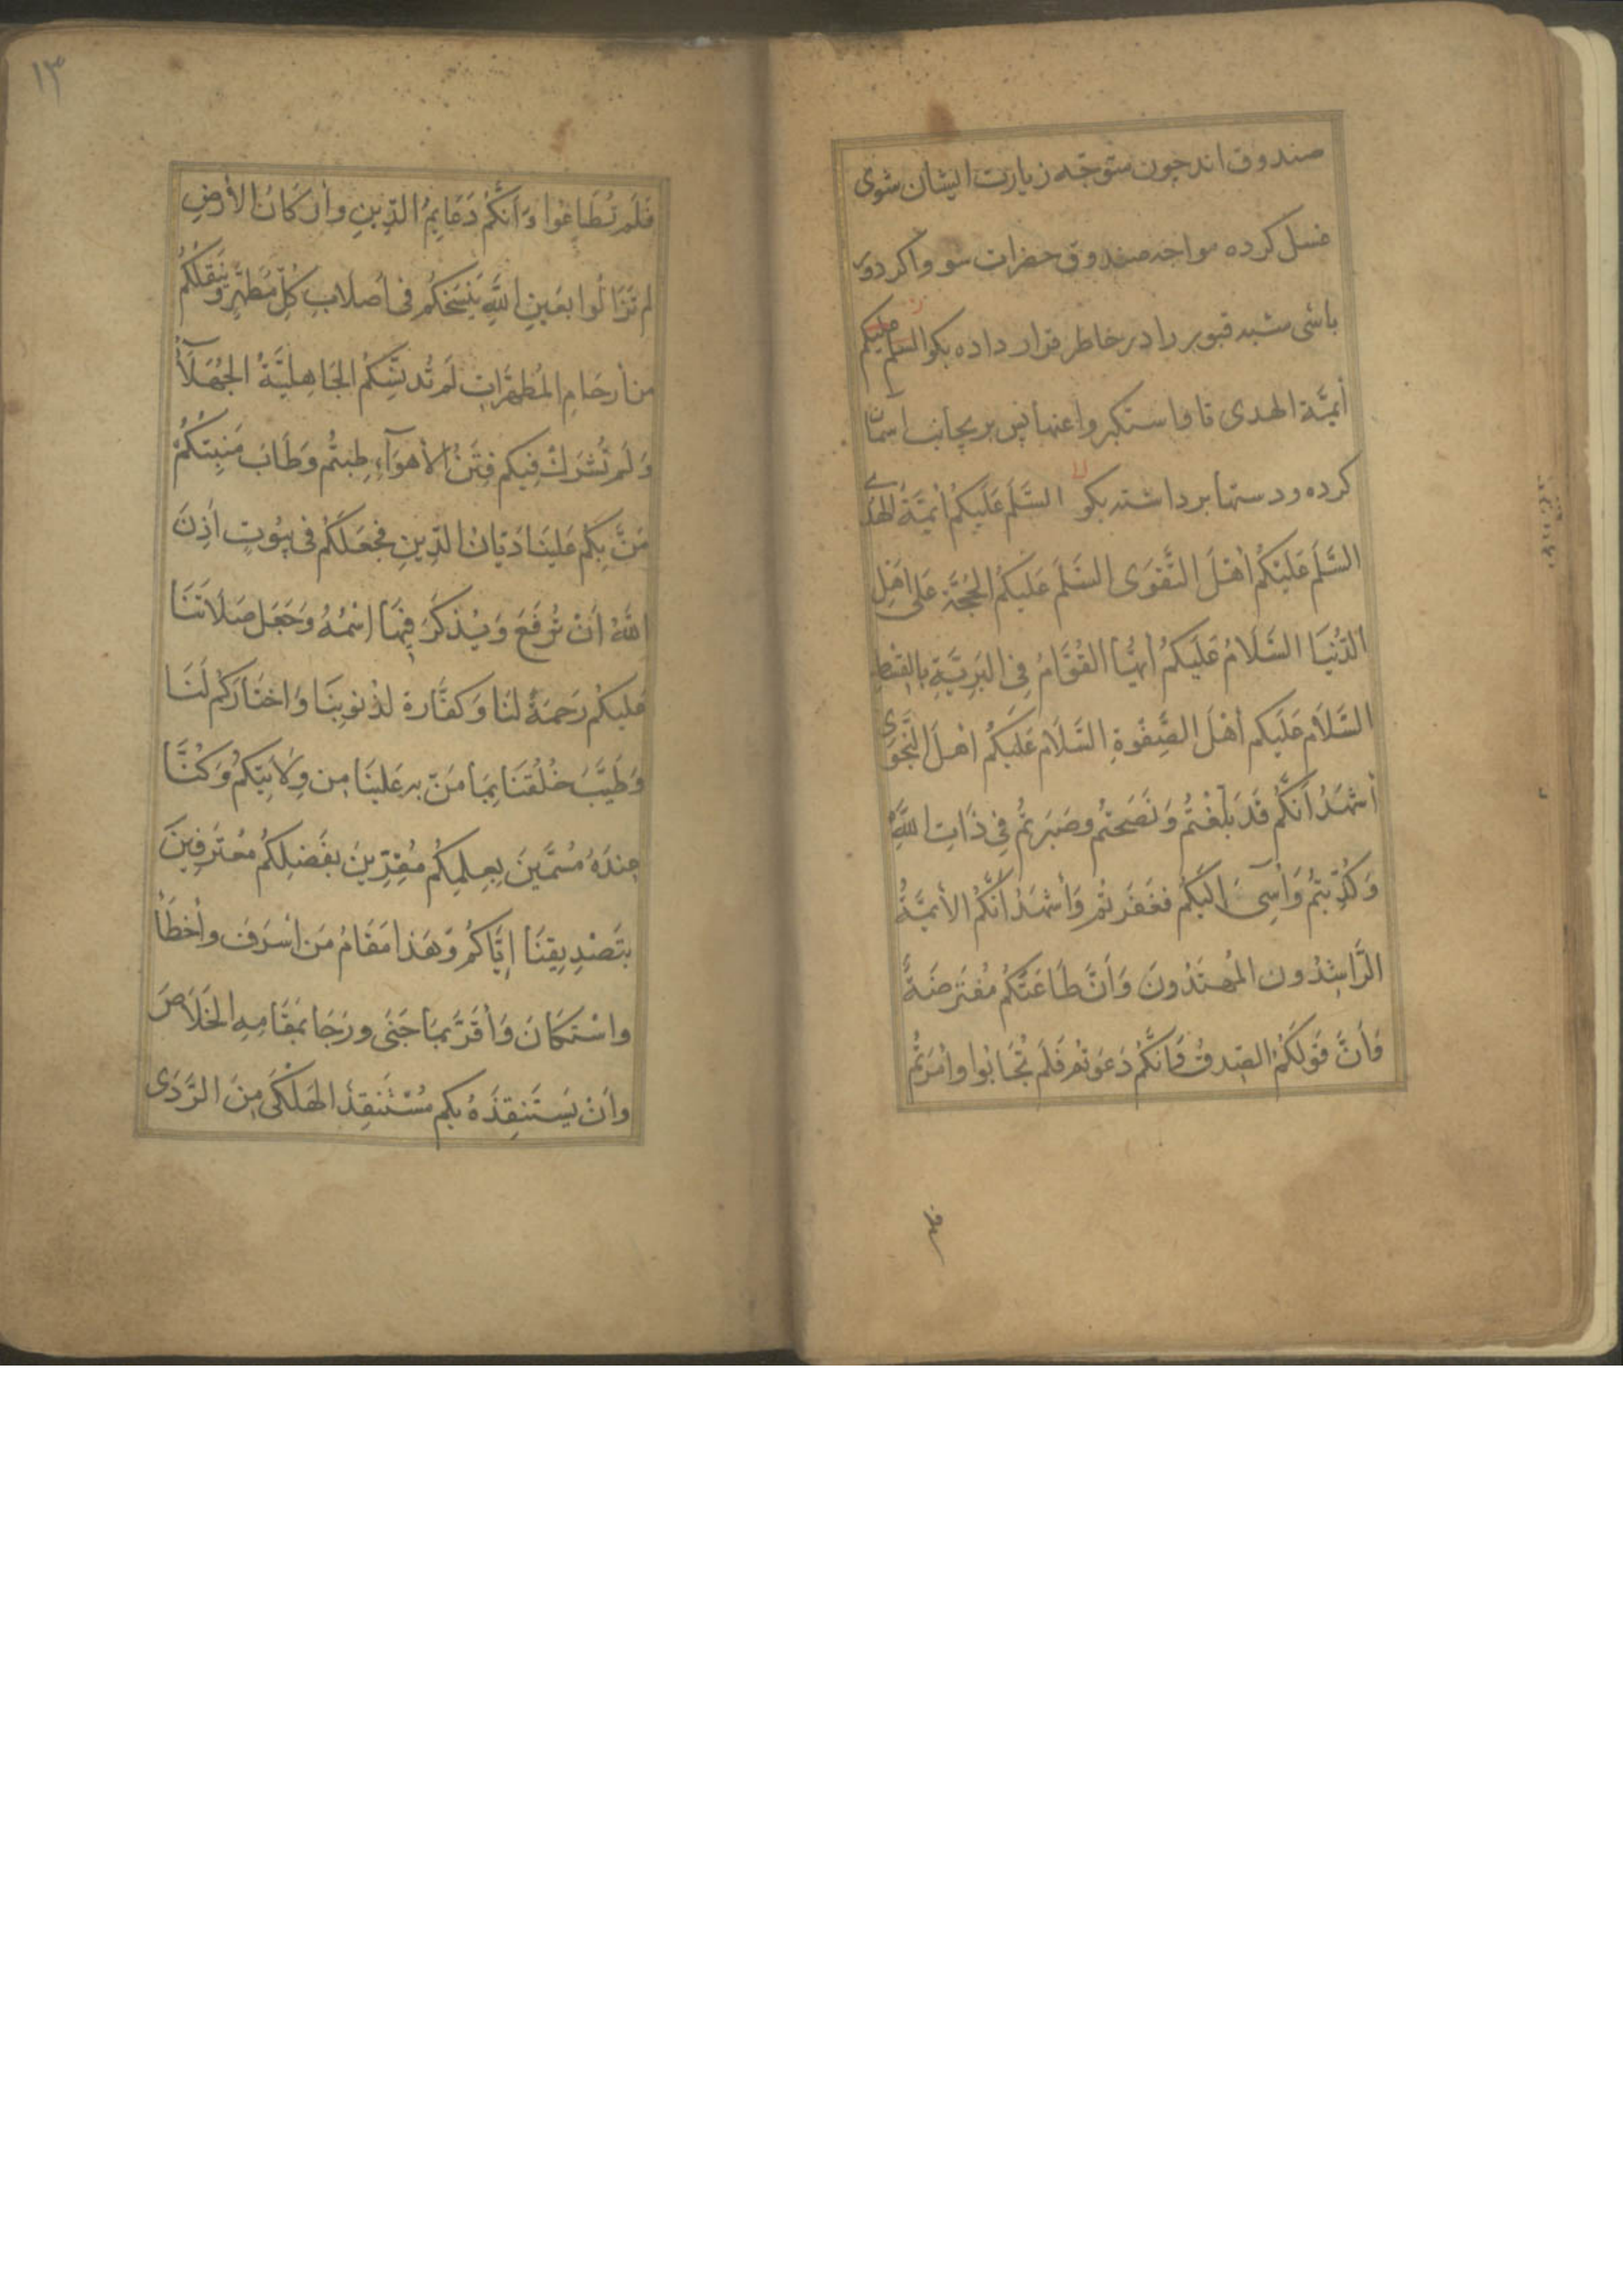 صندوق اند چون متوجّه زیارت ایشان شوی
غسل کرده مواجه صندوق حضرات شو و اکر دور
باشی مشبه قبور را در خاطر قرار داده بکو السلم علیکم
أئمّة الهدی تا واستکبروا عنها پس بر بجانب اسمان
کرده و دستها برداشته بکو السَّلَم عَلَیکُم أئِمَّةَ الهُدَی
السَّلَم عَلَیْکُم أَهْلَ التَّقوَی السَّلَم عَلَیکُم الحُجَّة عَلی أهلِ
الدُّنیَا السَّلَامُ عَلَیکُم أیُّهَا القُوَّامُ فِی البَرِیَّةِ بِالقِسْطِ
السَّلَام عَلَیکم أَهْلَ الصَّفوَةِ السَّلَام عَلَیکُم اهلَ النَّجوَی
أَشهَدُ أَنَّکُم قَد بَلَّغْتُم وَنَصَحتُم وصَبَرتُم فِی ذَاتِ اللَّهِ
وَکُذِّبتُم وَأُسِیَٔ اِلَیکُم فغَفَرتُم وَأَشهَدُ أَنَّکُم الأئمَّةُ
الرَّاشِدُون المُهتَدُونَ وَأَنَّ طَاعَتَکُم مُفتَرَضَةٌ
وَأَنَّ قَولَکُمُ الصِّدقُ وَانَّکُم دَعَوتُم فَلَم تُجَابُوا وأَمَرتُم
فلم
١٣
فَلَم تُطَاعُوا وَأَنَّکُم دَعَایِمُ الدِّینِ وأرکَانُ الأرضِ
لم تَزَالُوا بعَینِ اللَّهِ یَنسَخُکُم فی أصلَابِ کُلِّ مُطَهَّرٍ وَیَنقُلُکُم
من أرحَامِ المُطَهَّرَاتِ لَم تُدَنِّسکُم الجَاهِلِیَّةُ الجُهَلَآءُ
وَلَم تَشرَک فِیکم فِتَنُ الأهوَآءِ طِبتُم وَطَابَ مَنبِتُکُم
مَنَّ بِکُم عَلَینَا دَیَّانُ الدِّینِ فجَعَلَکُم فی بیُوتٍ أَذِنَ
اللَّهُ أَنْ تُرفَعَ وَیُذکَرَ فِیهَا اسْمُهُ وَجَعَلَ صَلَاتَنَا
عَلَیکُم رَحمَةً لنَا وَکفَّارة لذُنوبِنَا وَاختَارَکُم لَنَا
وَطَیَّبَ خَلقَنَا بِمَا مَنَّ به عَلَینَا مِن وِلَایَتِکُم وَکُنَّا
عِندَهُ مُسَمَّینَ بِعِلمِکُم مُقِرِّینَ بفَضلِکُم مُعتَرِفِینَ
بتَصْدِیقِنَا اِیَّاکُم وَهَذا مَقَامُ مَن أسرَفَ وأخطَأَ
واسْتکَانَ وَأَقَرَّ بِمَا جَنَی ورَجَا بمَقَامِهِ الخَلَاصَ
وأَنْ یَستَنقِذَهُ بکم مُسْتَنقِذُ الهَلکَی مِنَ الرَّدَی